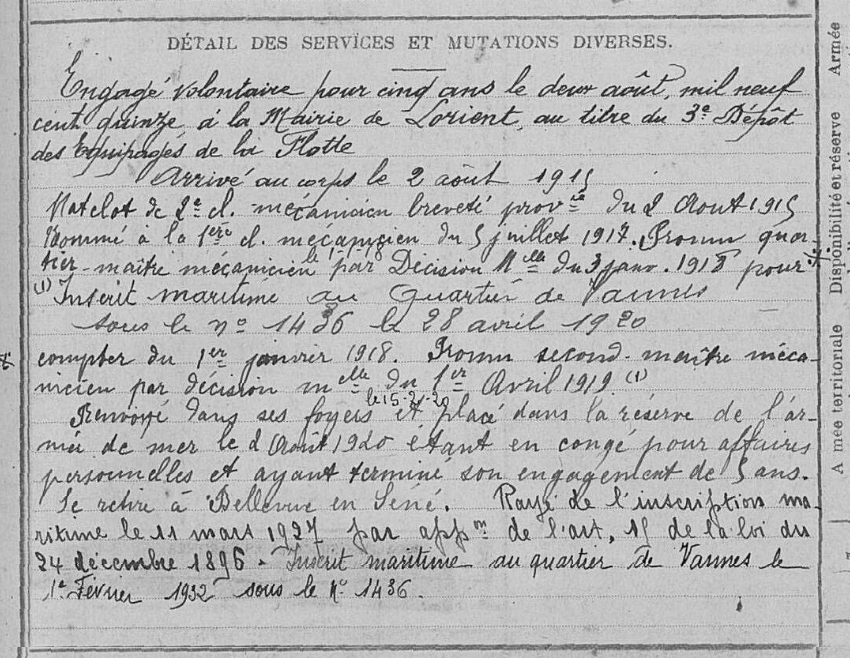 DÉTAIL DES SERVICES ET MUTATIONS DIVERSES.
Engagé volontaire pour cinq ans le deux août, mil neuf
cent quinze, à la Mairie de Lorient, au titre du 3e Dépôt
des Equipages de la Flotte
Arrivé au corps le 2 août 1915
Matelot de 2e cl. mécanicien breveté provre du 2 Aout 1915
Nommé à la 1ère cl. mécanicien du 5 juillet 1917. Promu quar-
le 1-1-18
tier-maître mécanicien par Décision Mlle du 3 janv. 1918 pour
(1) Inscrit maritime au Quartier de Vannes
sous le no 1436 le 28 avril 1920
compter du 1er janvier 1918. Promu second-maître méca-
nicien par décision mlle du 1er Avril 1919 (1)
Renvoyé dans ses foyers et placé dans la réserve de l'ar-
mée de mer le 2 Août 1920 étant en congé pour affaires
personnelles et ayant terminé son engagement de 5 ans.
Se retire à Bellevue en Sené. Rayé de l'inscription ma-
ritime le 11 mars 1927 par appon de l'art. 15 de la loi du
24 décembre 1896. Inscrit maritime au quartier de Vannes le
1e Février 1932 sous le No 1436.
Armée
Disponibilité et réserve
A mée territoriale